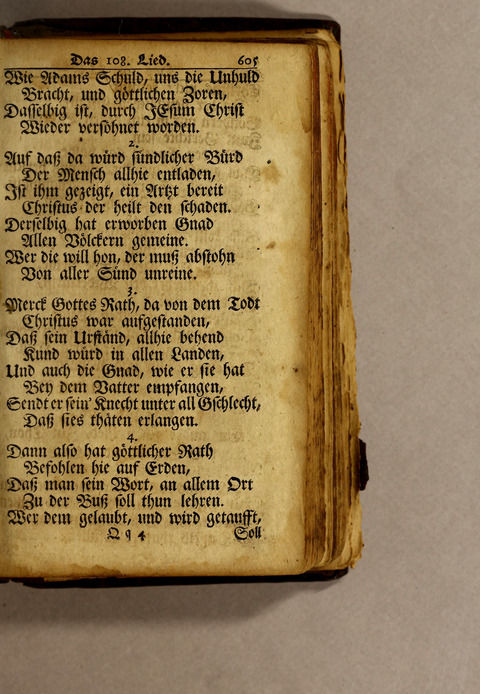 Das 108. Lied. 605
Wie Adams Schuld, uns die Unhuld
Bracht, und göttlichen Zoren,
Dasselbig ist, durch JEsum Christ
Wieder versöhnet worden.
2.
Auf daß da würd sündlicher Bürd
Der Mensch allhie entladen,
Jst ihm gezeigt, ein Artzt bereit
Christus der heilt den schaden.
Derselbig hat erworben Gnad
Allen Völckern gemeine.
Wer die will hon, der muß abstohn
Von aller Sünd unreine.
3.
Merck Gottes Rath, da von dem Todt
Christus war aufgestanden,
Daß sein Urständ, allhie behend
Kund würd in allen Landen,
Und auch die Gnad, wie er sie hat
Bey dem Vatter empfangen,
Sendt er sein' Knecht unter all Gschlecht,
Daß sies thäten erlangen.
4.
Dann also hat göttlicher Rath
Befohlen hie auf Erden,
Daß man sein Wort, an allem Ort
Zu der Buß soll thun lehren.
Wer dem gelaubt, und wird getaufft,
Q q 4 Soll